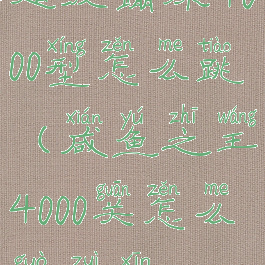 xíng zěn me tiào
00型怎么跳
xián yú zhī wáng
(咸鱼之王
guān zěn me
4000关怎么
guò zuì xīn